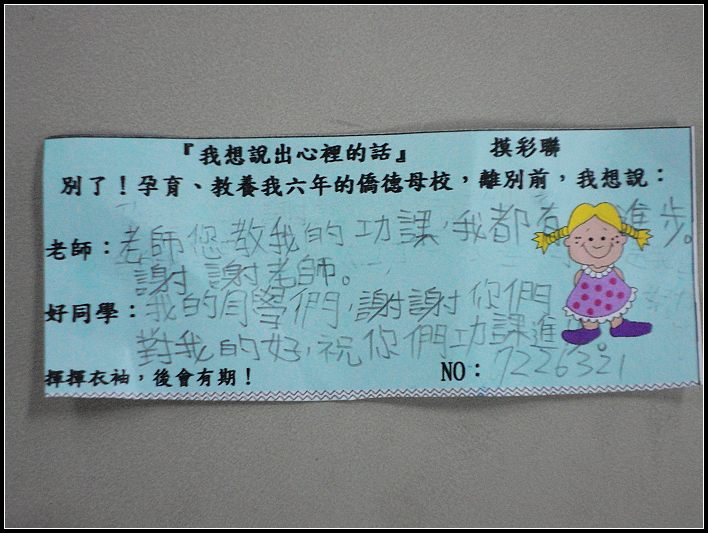 『我想說出心裡的話』 摸彩聯
別了！孕育、教養我六年的僑德母校，離別前，我想說：
老師：老師您教我的功課，我都有進步。
謝謝老師。
好同學：我的同學們，謝謝你們
對我的好，祝你們功課進
揮揮衣袖，後會有期！ NO：7226321